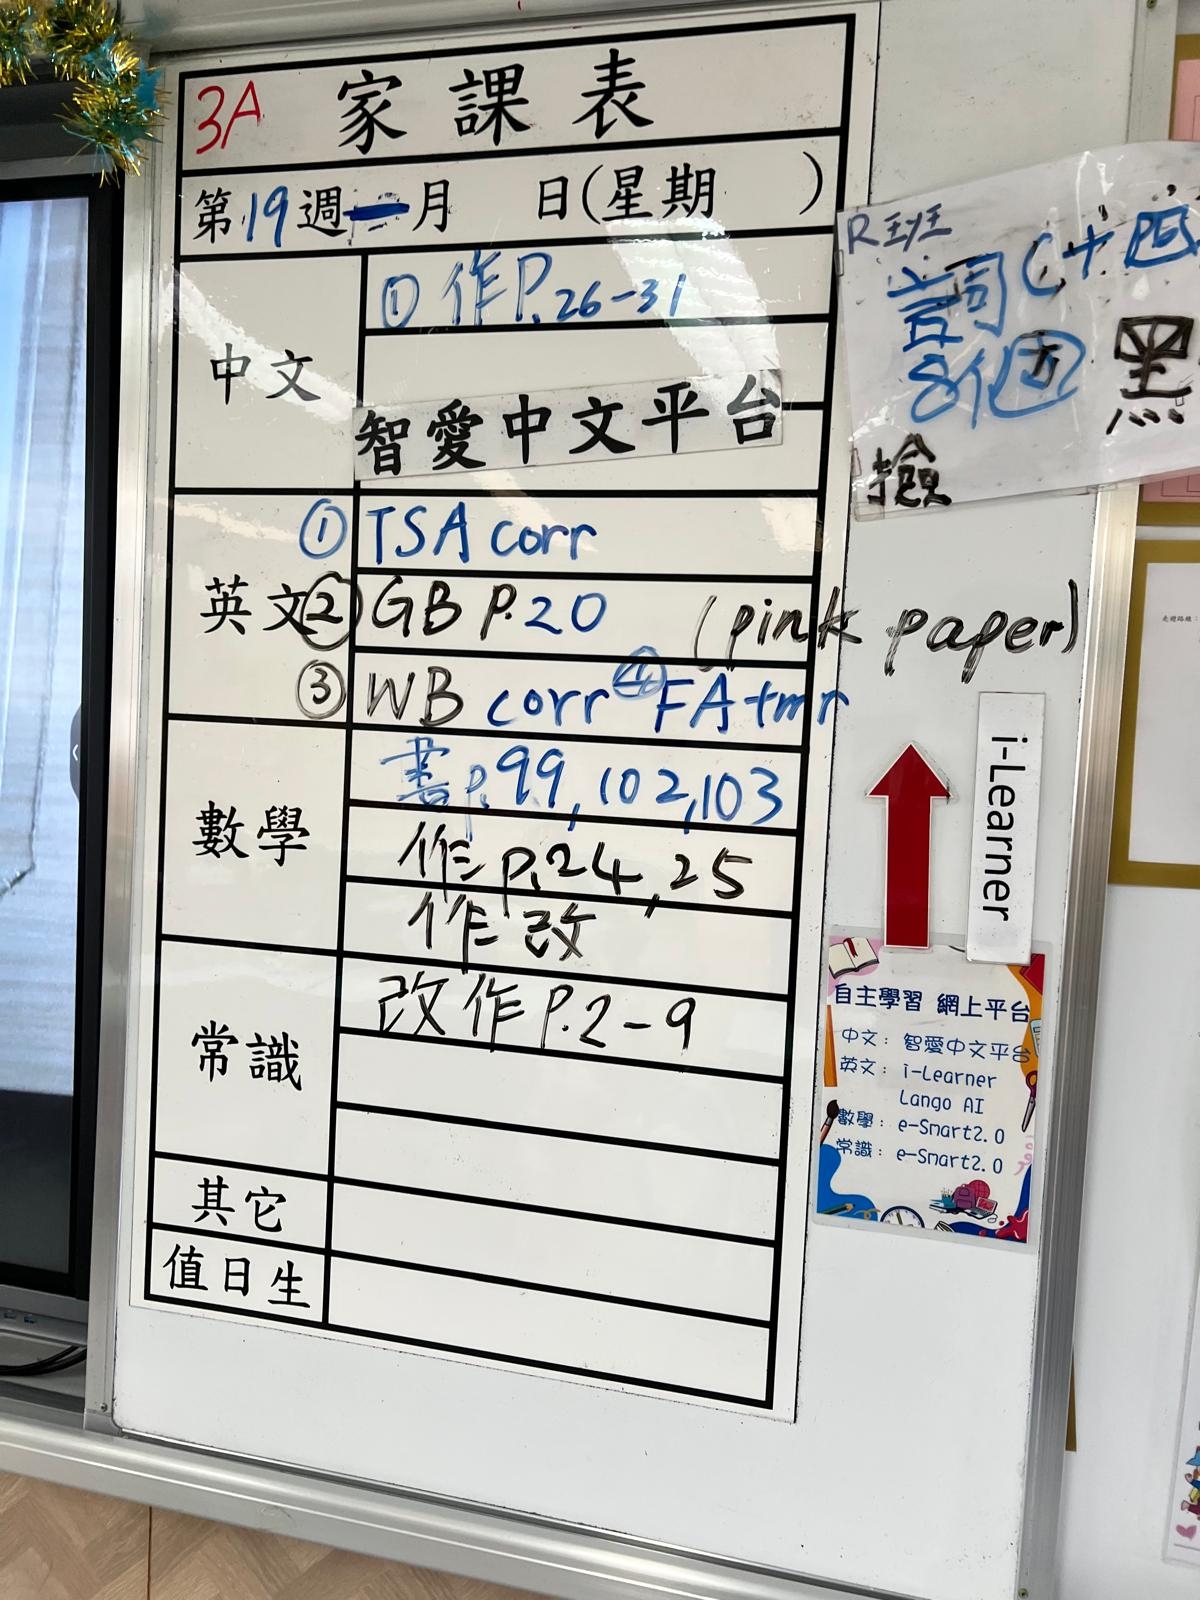 3A 家課表
第19週一月 日(星期 )
中文
① 作P.26-31
智愛中文平台
英文
① TSA corr
② GB P.20 (pink paper)
③ WB corr ④ FA tmr
數學
書p.99,102,103
作p.24,25
作改
常識
改作P.2-9
其它
值日生
R班
詞(十
8個
黑
撿
i-Learner
自主學習 網上平台
中文：智愛中文平台
英文：i-Learner
Lango AI
數學：e-Smart2.0
常識：e-Smart2.0